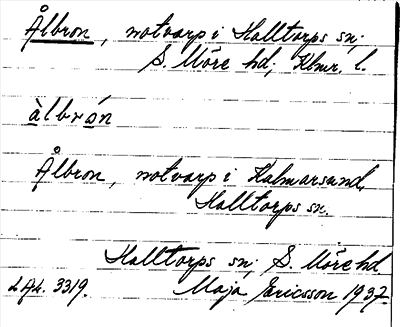 Ålbron, notvarp i Halltorps sn;
S. Möre hd; Klmr. l.
àlbrón
Ålbron, notvarp i Kalmarsund,
Halltorps sn.
Halltorps sn; S. Möre hd.
LAL. 3319. Maja Ericsson 1937.